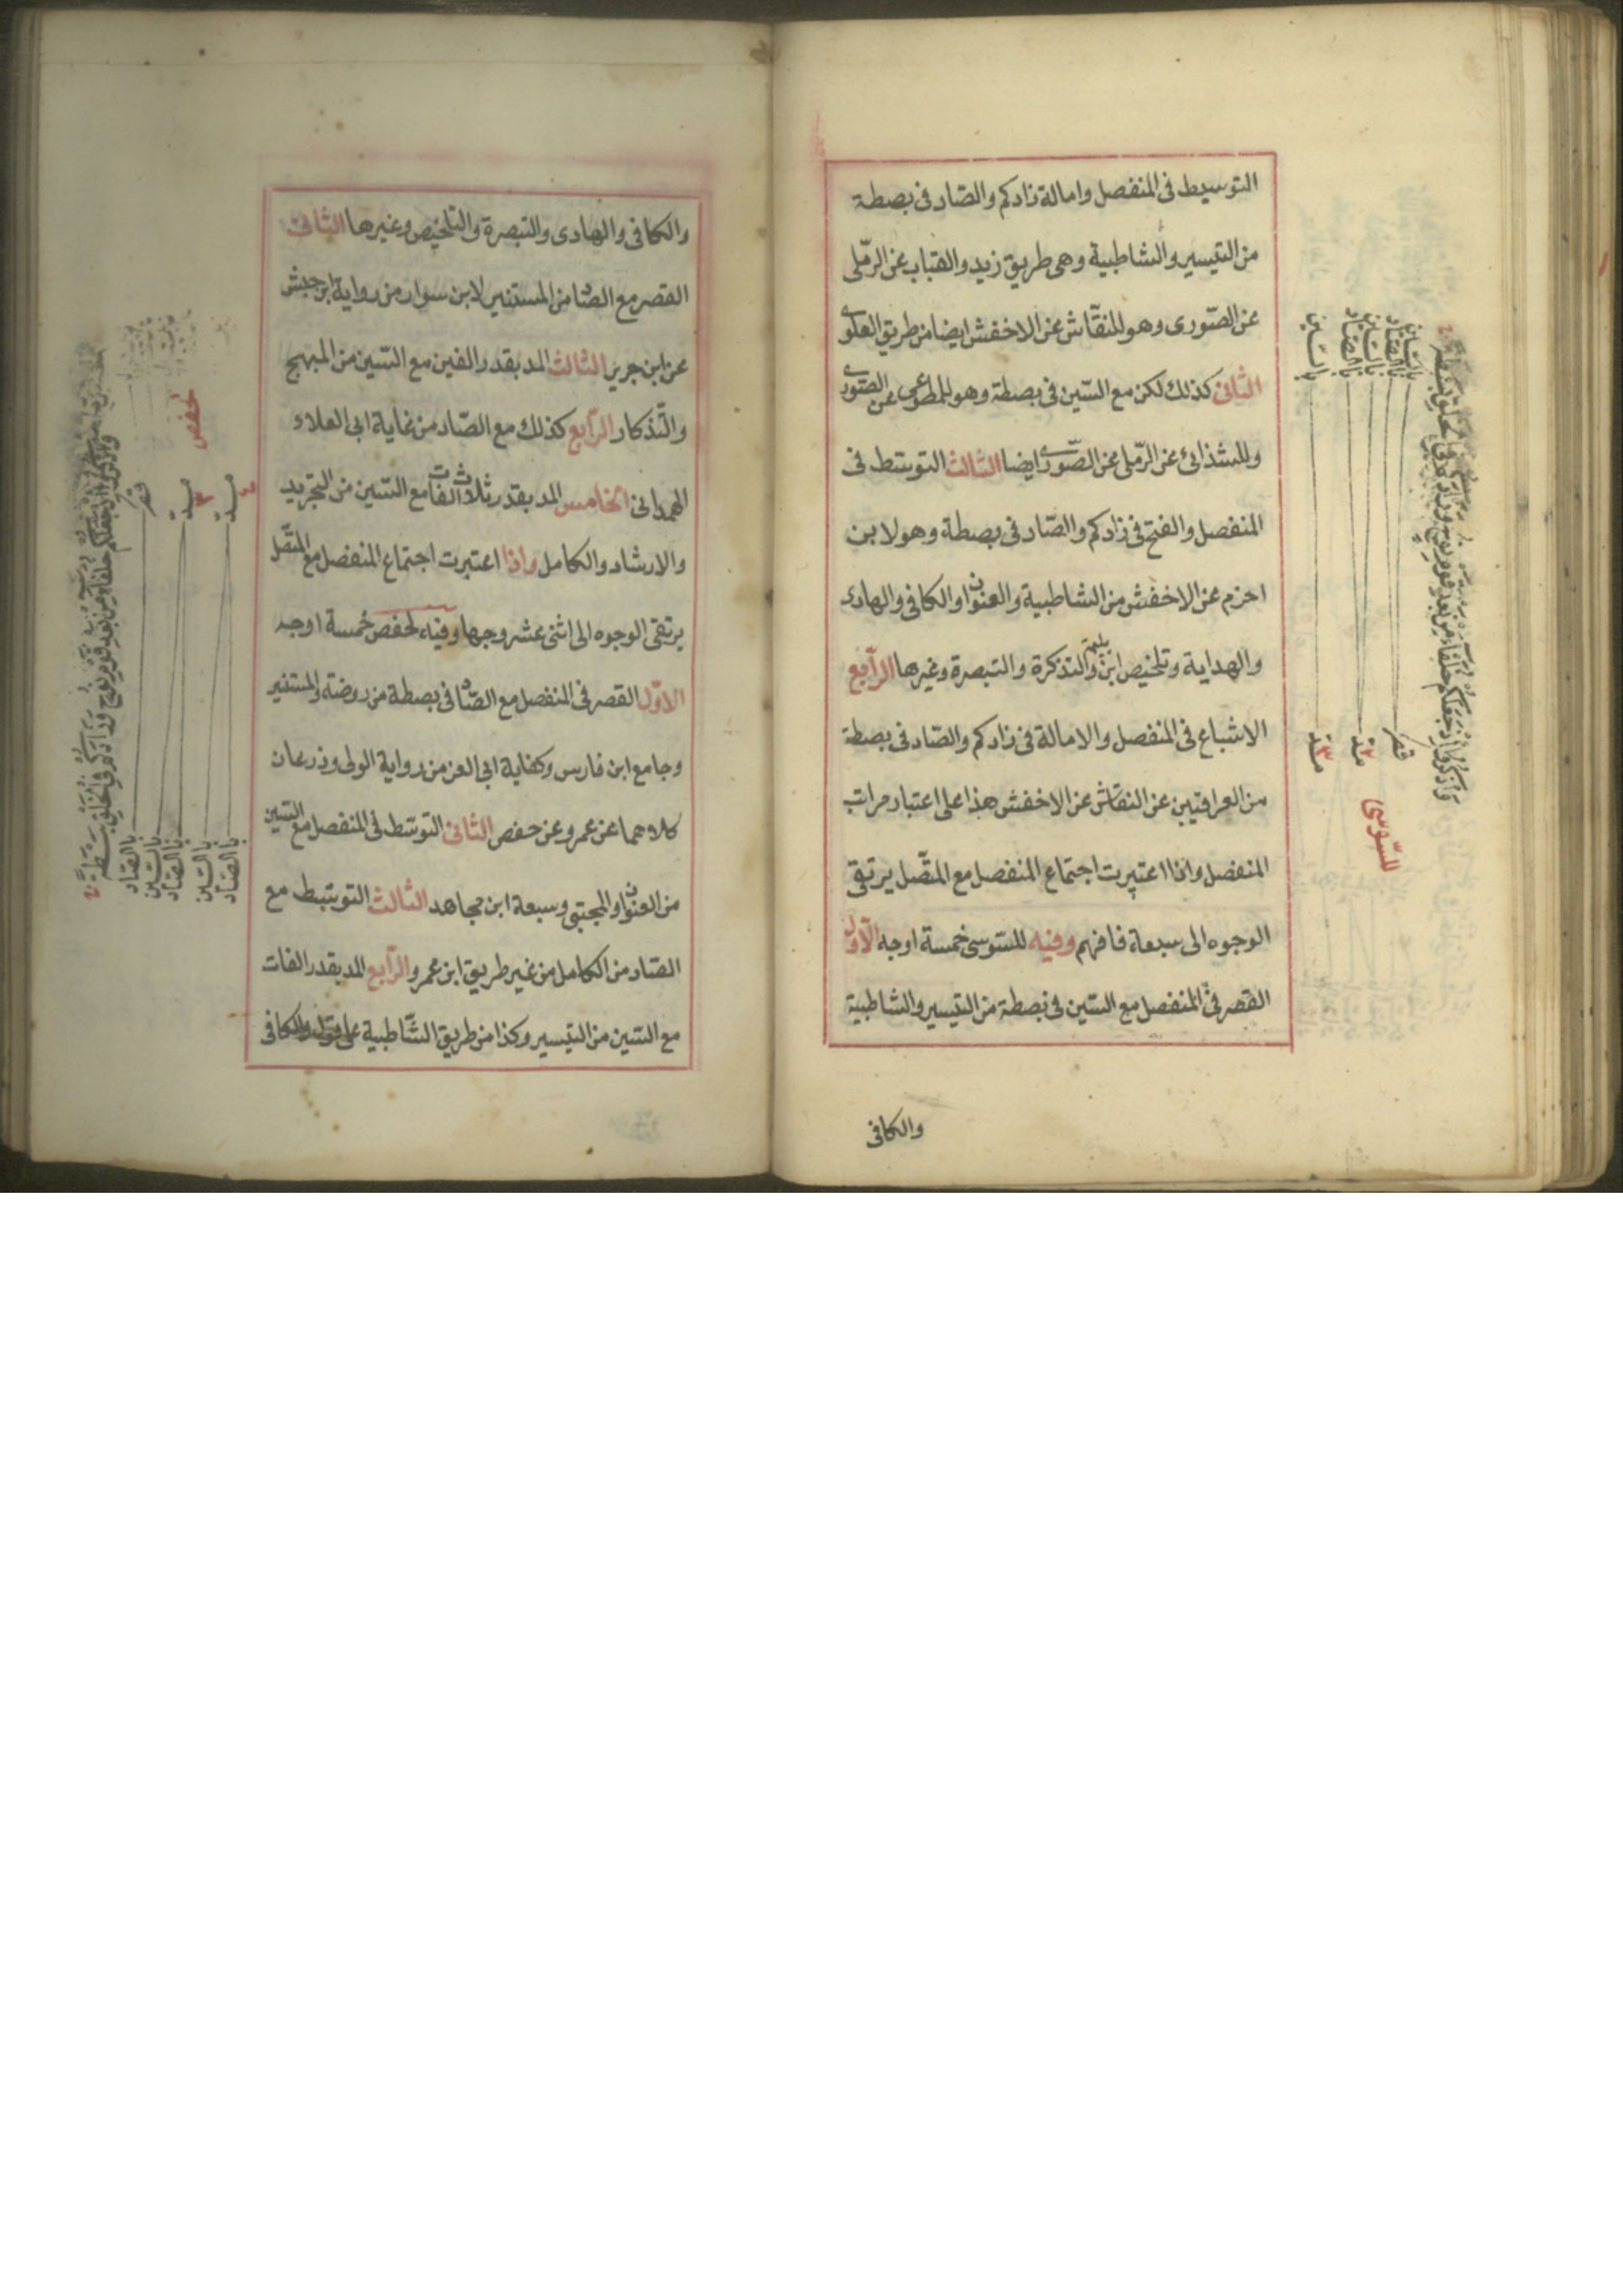 التوسيط فى المنفصل وامالة زادكم والصّاد فى بصطة
من التيسير والشاطبية وهى طريق زيد والقباب عن الرّملى
عن الصّورى وهو للنقّاش عن الاخفش ايضا من طريق العلوى
الثانى كذلك لكن مع السّين فى بصطة وهو للمطوعى عن الصّورى
وللشذائ عن الرّملى عن الصّورى ايضا الثالث التوسّط فى
المنفصل والفتح فى زادكم والصّاد فى بصطة وهو لابن
احزم عن الاخفش من الشاطبية والعنوان والكافى والهادى
والهداية وتلخيص ابن بليمة والتذكرة والتبصرة وغيرها الرّابع
الاشباع فى المنفصل والامالة فى زادكم والصّاد فى بصطة
من العراقيين عن النقّاش عن الاخفش هذا على اعتبار مراتب
المنفصل واذا اعتبرت اجتماع المنفصل مع المتّصل يرتقى
الوجوه الى سبعة فافهم وفيه للسّوسى خمسة اوجه الاوّل
القصر فى المنفصل مع السّين فى بصطة من التيسير والشاطبية
والكافى
بالسّين
بالصّاد
بالسّين
بالصّاد
بالسّين
قصر
مدّ ٢
مدّ ٣
للسّوسى
والكافى والهادى والتبصرة والتلخيص وغيرها الثانى
القصر مع الصّاد من المستنير لابن سوار من رواية ابن حبش
عن ابن جرير الثالث المد بقدر الفين مع السّين من المبهج
والتّذكار الرّابع كذلك مع الصّاد من غاية ابى العلاء
الهمدانى الخامس المد بقدر ثلاث الفات مع السّين من التجريد
والارشاد والكامل واذا اعتبرت اجتماع المنفصل مع المتّصل
يرتقى الوجوه الى اثنى عشر وجها وفيه لحفص خمسة اوجه
الاوّل القصر فى المنفصل مع الصّاد فى بصطة من روضة والمستنير
وجامع ابن فارس وكفاية ابى العز من رواية الولى وذرعان
كلاهما عن عمرو عن حفص الثانى التوسّط فى المنفصل مع السّين
من العنوان والمجتبى وسبعة ابن مجاهد الثالث التوسّط مع
الصّاد من الكامل من غير طريق ابن عمرو الرّابع المد بقدر الفات
مع السّين من التيسير وكذا من طريق الشّاطبية على والكافى
لحفص
قصر
مدّ ٣
مدّ ٤
بالصّاد
بالسّين
بالصّاد
بالسّين
بالصّاد